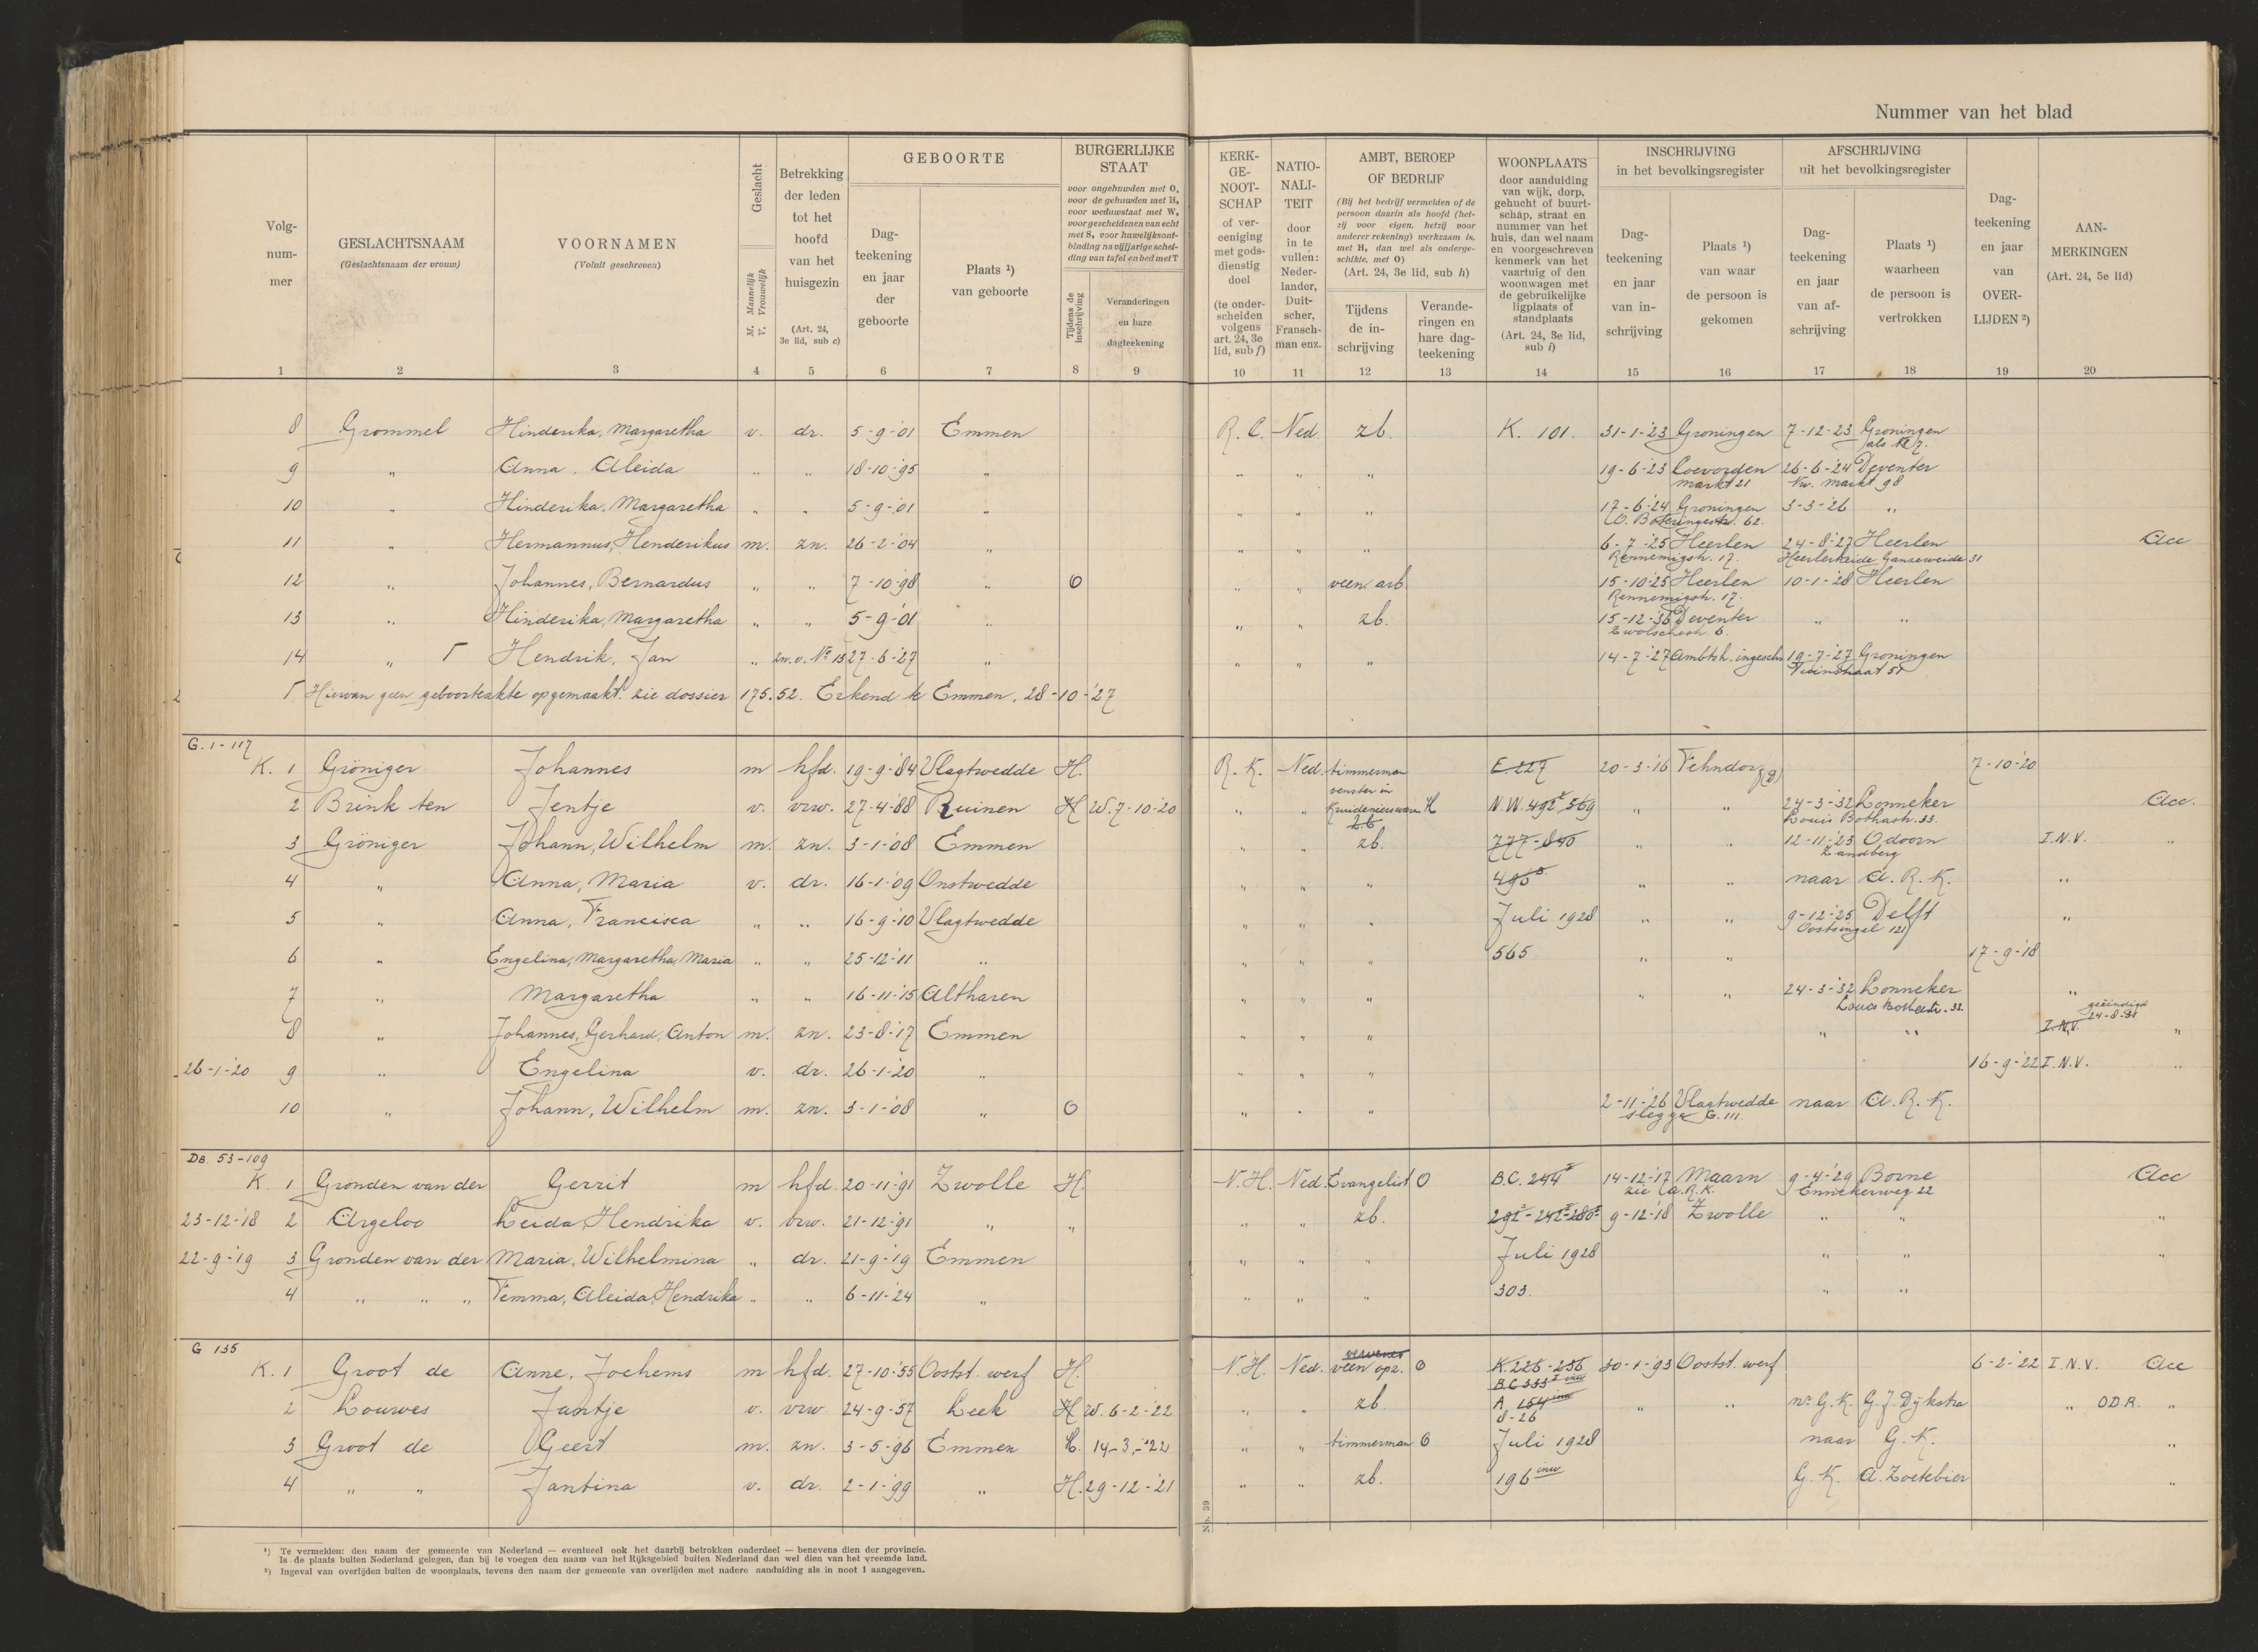 Nummer van het blad
Volg-nummer GESLACHTSNAAM (Geslachtsnaam der vrouw) VOORNAMEN (Voluit geschreven) Geslacht M. Mannelijk V. Vrouwelijk Betrekking der leden tot het hoofd van het huisgezin (Art. 24, 3e lid, sub c) GEBOORTE Dag-teekening en jaar der geboorte Plaats ¹) van geboorte BURGERLIJKE STAAT voor ongehuwden met O, voor de gehuwden met H, voor weduwstaat met W, voor gescheidenen van echt met S, voor huwelijksontbinding na vijfjarige scheiding van tafel en bed met T Tijdens de inschrijving Veranderingen en hare dagteekening
KERK-GE-NOOT-SCHAP of ver-eeniging met gods-dienstig doel (te onder-scheiden volgens art. 24, 3e lid, sub f) NATIO-NALI-TEIT door in te vullen: Neder-lander, Duit-scher, Fransch-man enz. AMBT, BEROEP OF BEDRIJF (Bij het bedrijf vermelden of de persoon daarin als hoofd (hetzij voor eigen, hetzij voor anderer rekening) werkzaam is, met H, dan wel als ondergeschikte, met O) (Art. 24, 3e lid, sub h) Tijdens de in-schrijving Verande-ringen en hare dag-teekening WOONPLAATS door aanduiding van wijk, dorp, gehucht of buurtschap, straat en nummer van het huis, dan wel naam en voorgeschreven kenmerk van het vaartuig of den woonwagen met de gebruikelijke ligplaats of standplaats (Art. 24, 3e lid, sub i) INSCHRIJVING in het bevolkingsregister Dag-teekening en jaar van in-schrijving Plaats ¹) van waar de persoon is gekomen AFSCHRIJVING uit het bevolkingsregister Dag-teekening en jaar van af-schrijving Plaats ¹) waarheen de persoon is vertrokken Dag-teekening en jaar van OVER-LIJDEN ²) AAN-MERKINGEN (Art. 24, 5e lid)
1 2 3 4 5 6 7 8 9 10 11 12 13 14 15 16 17 18 19 20
8 Grommel Hinderika, Margaretha v. dr. 5-9-'01 Emmen R.C. Ned. zb. K. 101. 31-1-'23 Groningen 7-12-23 Groningen
9 " Anna, Aleida " " 18-10-'95 " " " " 19-6-'23 Coevorden 26-6-'24 Deventer
markt 21 Nw. markt 98
10 " Hinderika, Margaretha " " 5-9-'01 " " " " 17-6-'24 Groningen 3-3-'26 "
O. Boteringestr. 62.
11 " Hermannus, Henderikus m. zn. 26-2-'04 " " " " 6-7-'25 Heerlen 24-8-'27 Heerlen Acc
Rennemigstr. 17. Heerlerheide Ganzeweide 31
12 " Johannes, Bernardus " " 7-10-'98 " O " " veen arb 15-10-'25 Heerlen 10-1-'28 Heerlen
Rennemigstr. 17.
13 " Hinderika, Margaretha " " 5-9-'01 " " " zb. Deventer " "
Zwolschestr. 6.
14 " Γ Hendrik, Jan " zn. v. No 13 27-6-'27 " " " " 14-7-'27 Ambtsh. ingeschr 19-7-'27 Groningen
Γ Hiervan geen geboorteakte opgemaakt. zie dossier 175.52. Erkend te Emmen, 28-10-'27
G. 1-117
K. 1 Gröniger Johannes m hfd. 19-9-'84 Vlagtwedde H. R.K. Ned. timmerman E 227 20-3-'16 Fehndorf 7-10-'20
2 Brink ten Jentje v. vrw. 27-4-'88 Ruinen H W. 7-10-'20 " " Kruidenierswaren H N.W. 492 569 " " 24-3-'32 Lonneker Acc.
zb Louis Bothastr. 33.
3 Gröniger Johann, Wilhelm m. zn. 3-1-'08 Emmen " " zb. 777-840 " " 12-11-'23 Odoorn I.N.V. "
Zandberg
4 " Anna, Maria v. dr. 16-1-'09 Onstwedde " " " 495 " " naar A.R.K. "
5 " Anna, Francisca " " 16-9-'10 Vlagtwedde " " " Juli 1928 " " 9-12-'25 Delft "
Oostsingel 121
6 " Engelina, Margaretha, Maria " " 25-12-'11 " " " " 565 " " 17-9-'18
7 " Margaretha " " 16-11-'15 Altharen " " " " " 24-3-'32 Lonneker "
8 " Johannes, Gerhard, Anton m. zn. 23-8-'17 Emmen " " " " " I.N.V. geëindigd "
26-1-'20 9 " Engelina v. dr. 26-1-'20 " " " " 16-9-'22 I.N.V. "
10 " Johann, Wilhelm m. zn. 3-1-'08 " O " " " 2-11-'26 Vlagtwedde naar A.R.K.
G. 111
Da. 53-109
K. 1 Gronden van der Gerrit m hfd. 20-11-'91 Zwolle H. N.H. Ned. Evangelist O B.C. 244 14-12-'17 Maarn 9-4-'29 Borne Acc
zie A.R.K. Ennekerweg 22
23-12-'18 2 Argeloo Leida, Hendrika v. vrw. 21-12-'91 " " " " zb. 9-12-'18 Zwolle " " "
22-9-'19 3 Gronden van der Maria, Wilhelmina " dr. 21-9-'19 Emmen " " " Juli 1928 " " "
4 " " " Femma, Aleida, Hendrika " " 6-11-'24 " " " " 303. " "
G 135
K. 1 Groot de Anne, Jochems m hfd. 27-10-'55 Oostst. werf H. N.H. Ned. veen opz. O K. 225-256 30-1-'93 Oostst. werf 6-2-'22 I.N.V. Acc
2 Louwes Jantje v. vrw 24-9-'57 Leek H W. 6-2-'22 " " zb. A 154 " " nr G.K. G.J. Dijkstra " O.D.R. "
8-26
3 Groot de Geert m. zn. 3-5-'96 Emmen H. 14-3-'22 " " timmerman O Juli 1928 naar G.K. "
4 " " Jantina v. dr. 2-1-'99 " H. 29-12-'21 " " zb. 196 inw G.K. A. Zoetebier "
No. 39
¹) Te vermelden: den naam der gemeente van Nederland — eventueel ook het daarbij betrokken onderdeel — benevens dien der provincie.
Is de plaats buiten Nederland gelegen, dan bij te voegen den naam van het Rijksgebied buiten Nederland dan wel dien van het vreemde land.
²) Ingeval van overlijden buiten de woonplaats, tevens den naam der gemeente van overlijden met nadere aanduiding als in noot 1 aangegeven.